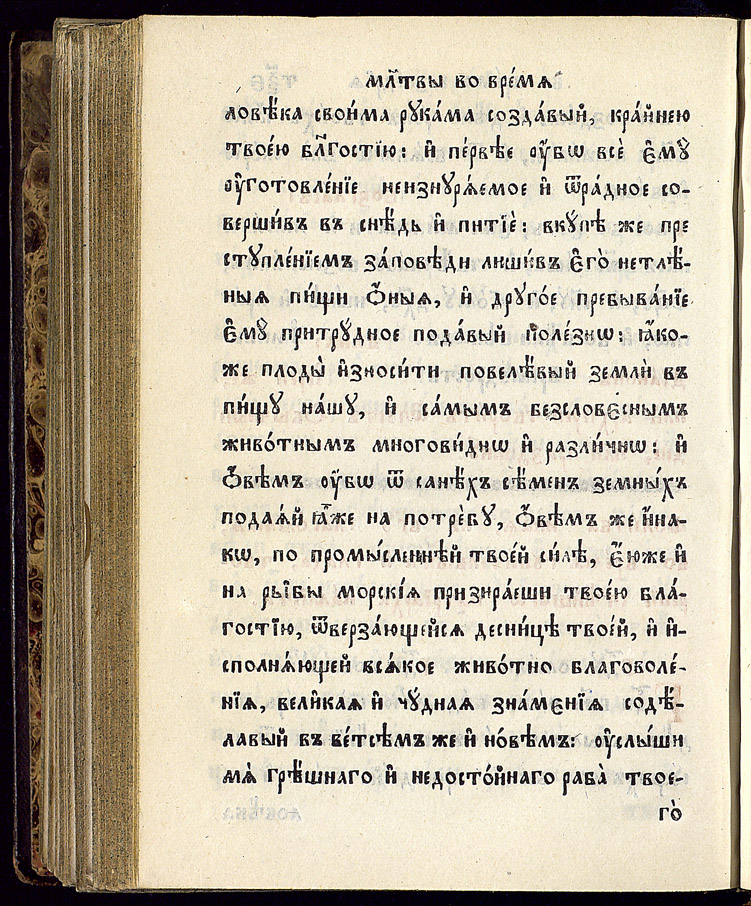 мл҃твы во вре́мѧ
ловѣ́ка свои́ма рꙋка́ма созда́вый, кра́йнею
твое́ю бл҃гостїю: и҆ пе́рвѣе ᲂу҆́бѡ всѐ є҆мꙋ̀
ᲂу҆гото́вле́нїе неизнꙋрѧ́емое и҆ ѿра́дное со-
верши́въ въ снѣ́дь и҆ питїѐ: вкꙋ́пѣ же пре
стꙋпле́нїемъ за́повѣди лиши́въ є҆гѡ̀ нетлѣ́-
ныѧ пи́щи ѻ҆́ныѧ, и҆ дрꙋго́е пребыва́нїе
є҆мꙋ̀ притрꙋ́дное пода́вый поле́знѡ: ꙗ҆́ко-
же плоды̀ и҆зноси́ти повелѣ́вый землѝ въ
пи́щꙋ на́шꙋ, и҆ са́мымъ безслове́снымъ
живо́тнымъ многови́днѡ и҆ разли́чнѡ: и҆
ѻ҆́вѣмъ ᲂу҆́бѡ ѿ санѣ́хъ сѣ́менъ земны́хъ
подаѧ́й ꙗ҆̀же на потрѐбꙋ, ѻ҆́вѣмъ же и҆́на-
кѡ, по промы́сленнѣй твое́й си́лѣ, є҆́юже и҆
на ры́бы морскі́ѧ призира́еши твое́ю бла́-
гостїю, ѿверза́ющейсѧ десни́цѣ твое́й, и҆ и҆-
сполнѧ́ющей всѧ́кое живо́тно благоволе́-
нїѧ, вели́каѧ и҆ чꙋ́днаѧ зна́менїѧ содѣ́-
лавый въ ве́тсѣмъ же и҆ но́вѣмъ: ᲂу҆слы́ши
мѧ̀ грѣ́шнаго и҆ недосто́йнаго раба̀ твое-
го̀